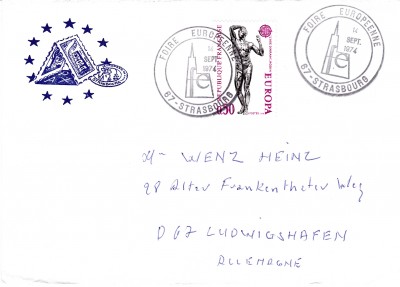 FOIRE EUROPÉENNE
14
SEPT.
1974
fe
67-STRASBOURG
RÉPUBLIQUE FRANÇAISE
0,50
EUROPA
FOIRE EUROPÉENNE
14
SEPT.
1974
fe
67-STRASBOURG
Mr WENZ HEINZ
98 Alter Frankenthaler Weg
D 67 LUDWIGSHAFEN
ALLEMAGNE